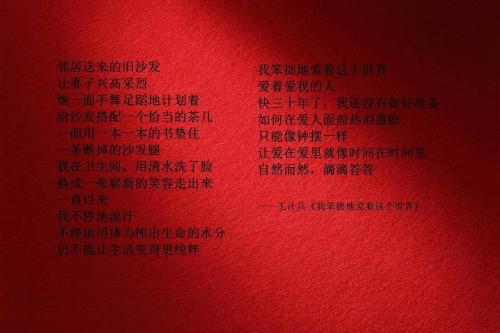 邻居送来的旧沙发
让妻子兴高采烈
她一面手舞足蹈地计划着
给沙发搭配一个恰当的茶几
一面用一本一本的书垫住
一条断掉的沙发腿
我在卫生间，用清水洗了脸
换成一张崭新的笑容走出来
一直以来
我不停地流汗
不停地用体力榨出生命的水分
仍不能让生活变得更纯粹
我笨拙地爱着这个世界
爱着爱我的人
快三十年了，我还没有做好准备
如何在爱人面前热泪盈眶
只能像钟摆一样
让爱在爱里就像时间在时间里
自然而然，滴滴答答
——王计兵《我笨拙地爱着这个世界》